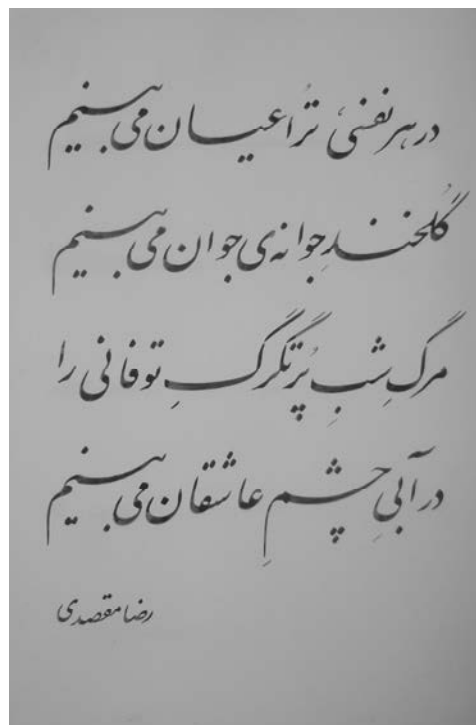 در هر نفسی، تُرا عیان می بینیم
گُلخندِ جوانه‌ی جوان می بینیم
مرگِ شبِ پُر تگرگِ توفانی را
در آبیِ چشمِ عاشقان می بینیم
رضا مقصدی